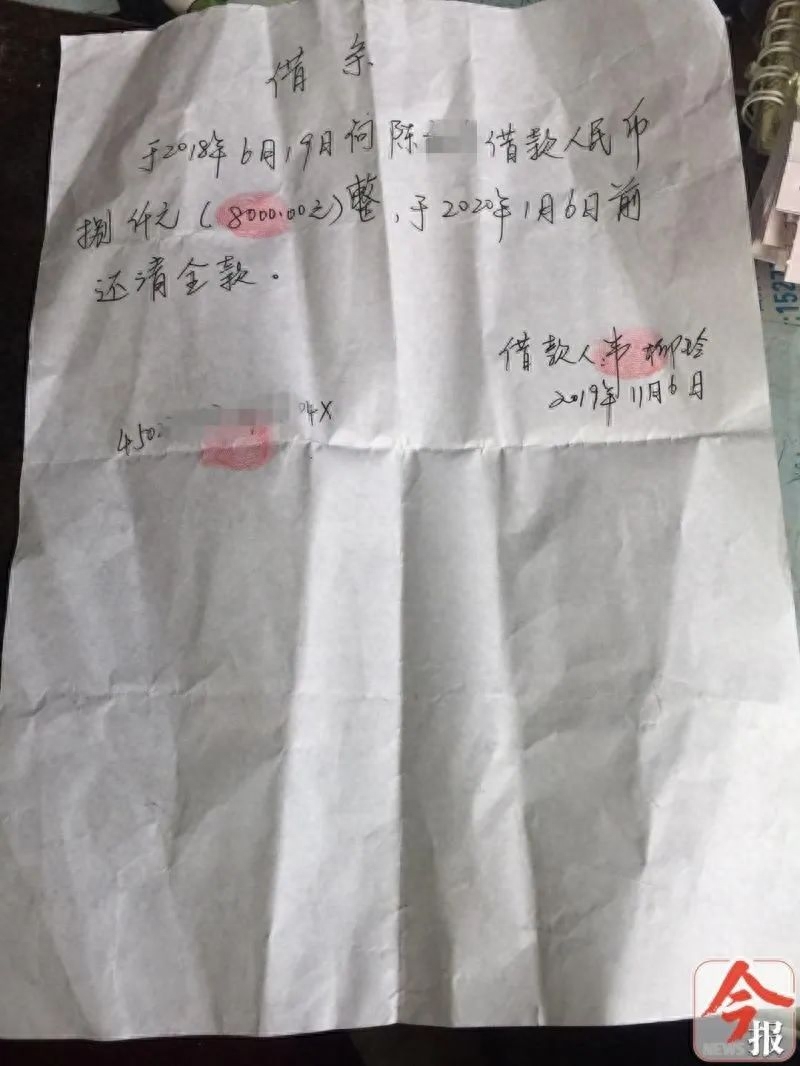 借条
于2018年6月19日向陈 借款人民币
捌仟元(8000.00元)整,于2020年1月6日前
还清全款。
借款人:韦柳玲
2019年11月6日
450 04X
:1527
今报
NEWS